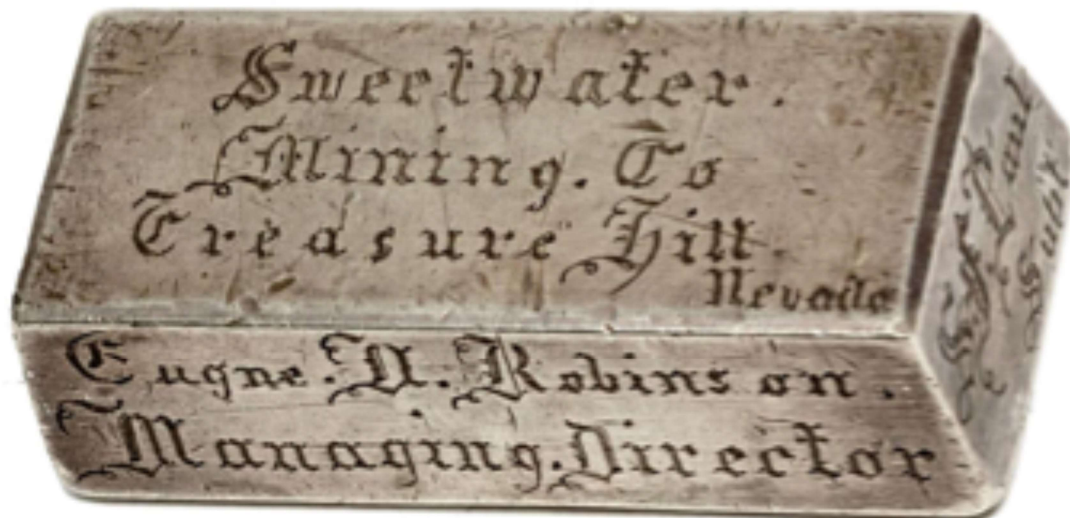 Sweetwater.
Mining. Co
Treasure Hill.
Nevada
Eugne. N. Robinson.
Managing. Director